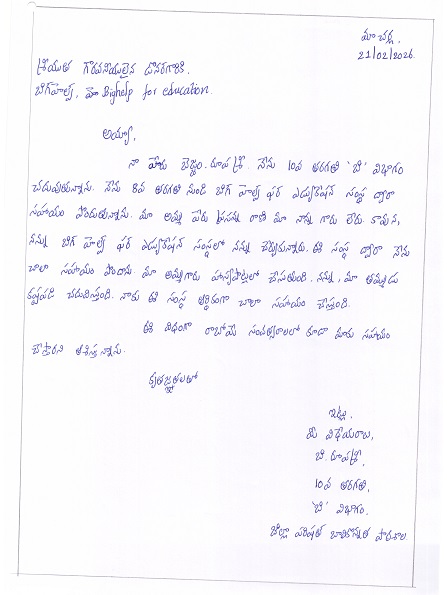 మాచర్ల,
21/02/2026.
శ్రీయుత గౌరవనీయులైన డొనర్‌గారికి
బిగ్‌హెల్ప్, మా Bighelp for education.
అయ్యా,
నా పేరు బెజ్జం. రూపశ్రీ. నేను 10వ తరగతి 'బి' విభాగం
చదువుతున్నాను. నేను 8వ తరగతి నుండి బిగ్ హెల్ప్ ఫర్ ఎడ్యుకేషన్ సంస్థ ద్వారా
సహాయం పొందుతున్నాను. మా అమ్మ పేరు ప్రసన్న రాణి మా నాన్న గారు లేరు. కావున,
నన్ను బిగ్ హెల్ప్ ఫర్ ఎడ్యుకేషన్ సంస్థలో నన్ను చేర్చుకున్నారు. ఈ సంస్థ ద్వారా నేను
చాలా సహాయం పొందాను. మా అమ్మగారు హాస్పిటల్లో చేసతుంది. నన్ను, మా తమ్ముడు
కష్టపడి చదుదిస్తుంది. నాకు ఈ సంస్థ ఆర్థికంగా చాలా సహాయం చేస్తుంది.
ఈ విధంగా రాబోయే సంవత్సరాలలో కూడా మీరు సహాయం
చేస్తారని ఆశిస్తున్నాను.
కృతజ్ఞతలతో
ఇట్లు,
మీ విధేయరాలు,
బి. రూపశ్రీ,
10వ తరగతి,
'బి' విభాగం.
జిల్లా పరిషత్ బాలికోన్నత పాఠశాల.